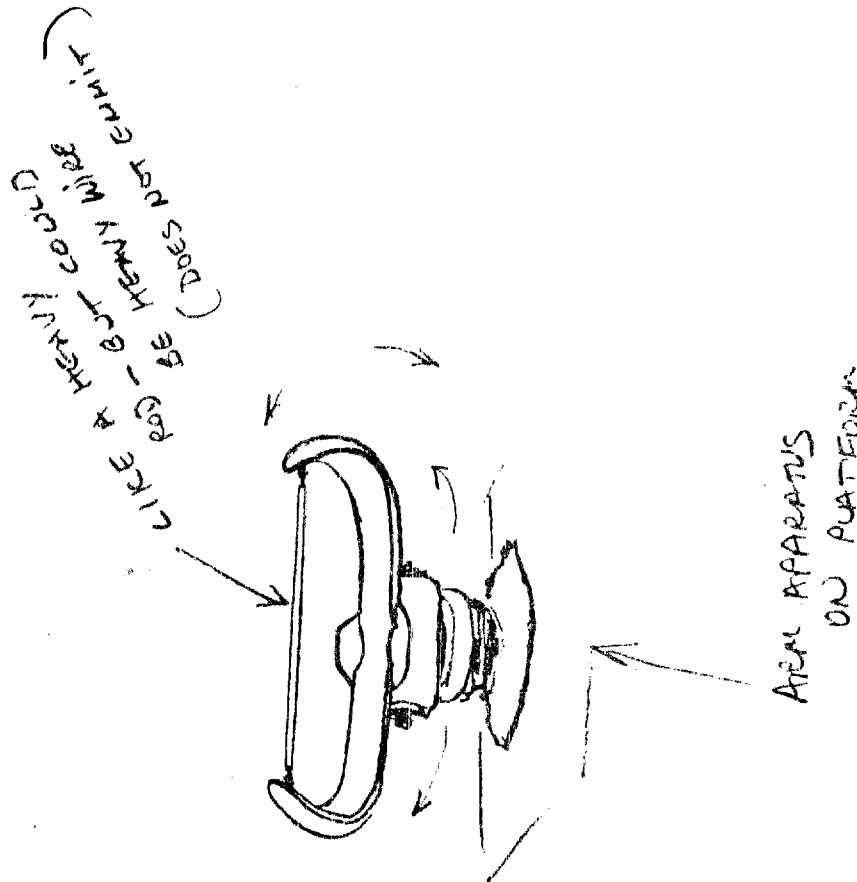 LIKE A HEAVY
ROD - BUT COULD
BE HEAVY WIRE
(DOES NOT EMMIT)
ARM APPARATUS
ON PLATFORM